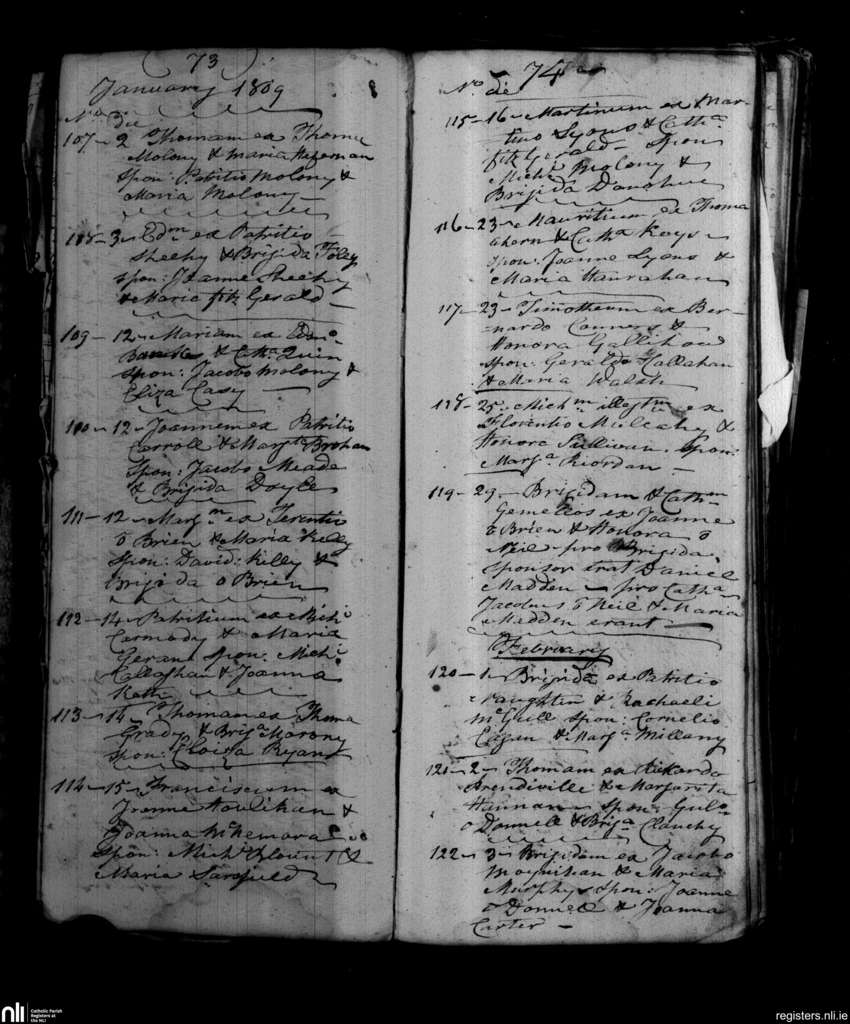 73
January 1809
No die
107 - 2 Thomam ex Thoma
Molony & Maria Hefernan
Spon: Patritio Molony &
Maria Molony
108 - 3 - Edm ex Patritio
Sheehy & Brigida Foley
Spon: Joanne Sheehy
& Maria fitz Gerald
109 - 12 - Mariam ex Edm:o
& Cath: Quin
Spon: Jacobo Molony &
Eliza Casy
110 - 12 - Joannem ex Patritio
Carroll & Margta Brohan
Spon: Jacobo Meade
& Brigida Doyle
111 - 12 - Marg:m ex Terentio
ō Brien & Maria Kelly
Spon: David: Kelly &
Brigida o Brien
112 - 14 - Patritium ex Mich:
Carmody & Maria
Geran Spon: Mich:
Callaghan & Joanna
113 - 14 - Thomam ex Thoma
Grady & Brig:a Marony
Spon: Eloiza Ryan
114 - 15 - Franciscum ex
Joanne Houlihan &
Joanna McNemara
Spon: Mich: &
Maria Sarsfield
74
No die
115 - 16 - Martinum ex Mar-
tino Lyons & Cath:a
fitz Gerald - Spon
Michl Molony &
Brigida Donohue
116 - 23 - Mauritium ex Thoma
Ahern & Catha Keys -
Spon: Joanne Lyons &
Maria Hanrahan
117 - 23 - Timotheum ex Ber-
nardo Conners &
Honora Gallihou
Spon: Geraldo Hallahan
& Maria Walsh
118 - 25 - Mich:m illegtm ex
Florentio Mulcahy &
Honora Sullivan. Spon:
Marg:a Riordan -
119 - 29 - Brigidam & Cath:m
Gemellos ex Joanne
ō Brien & Honora ō
Neil - pro Brigida
Sponsor erat Daniel
Madden - pro Catha
Jacobus ō Neil & Maria
Madden erant -
February
120 - 1 - Brigida ex Patritio
Naughten & Rachaeli
McGuill Spon: Cornelio
Eagan & Marg:a Millany
121 - 2 - Thomam ex Rikardo
Prendiville & Margarita
Hannan - Spon: Gulo
o Donnell & Brig:a Clanchy
122 - 3 - Brigidam ex Jacobo
Moynihan & Maria
Murphy Spon: Joanne
o Donnell & Joanna
Carter -
nli
Catholic Parish
Registers at
the NLI
registers.nli.ie